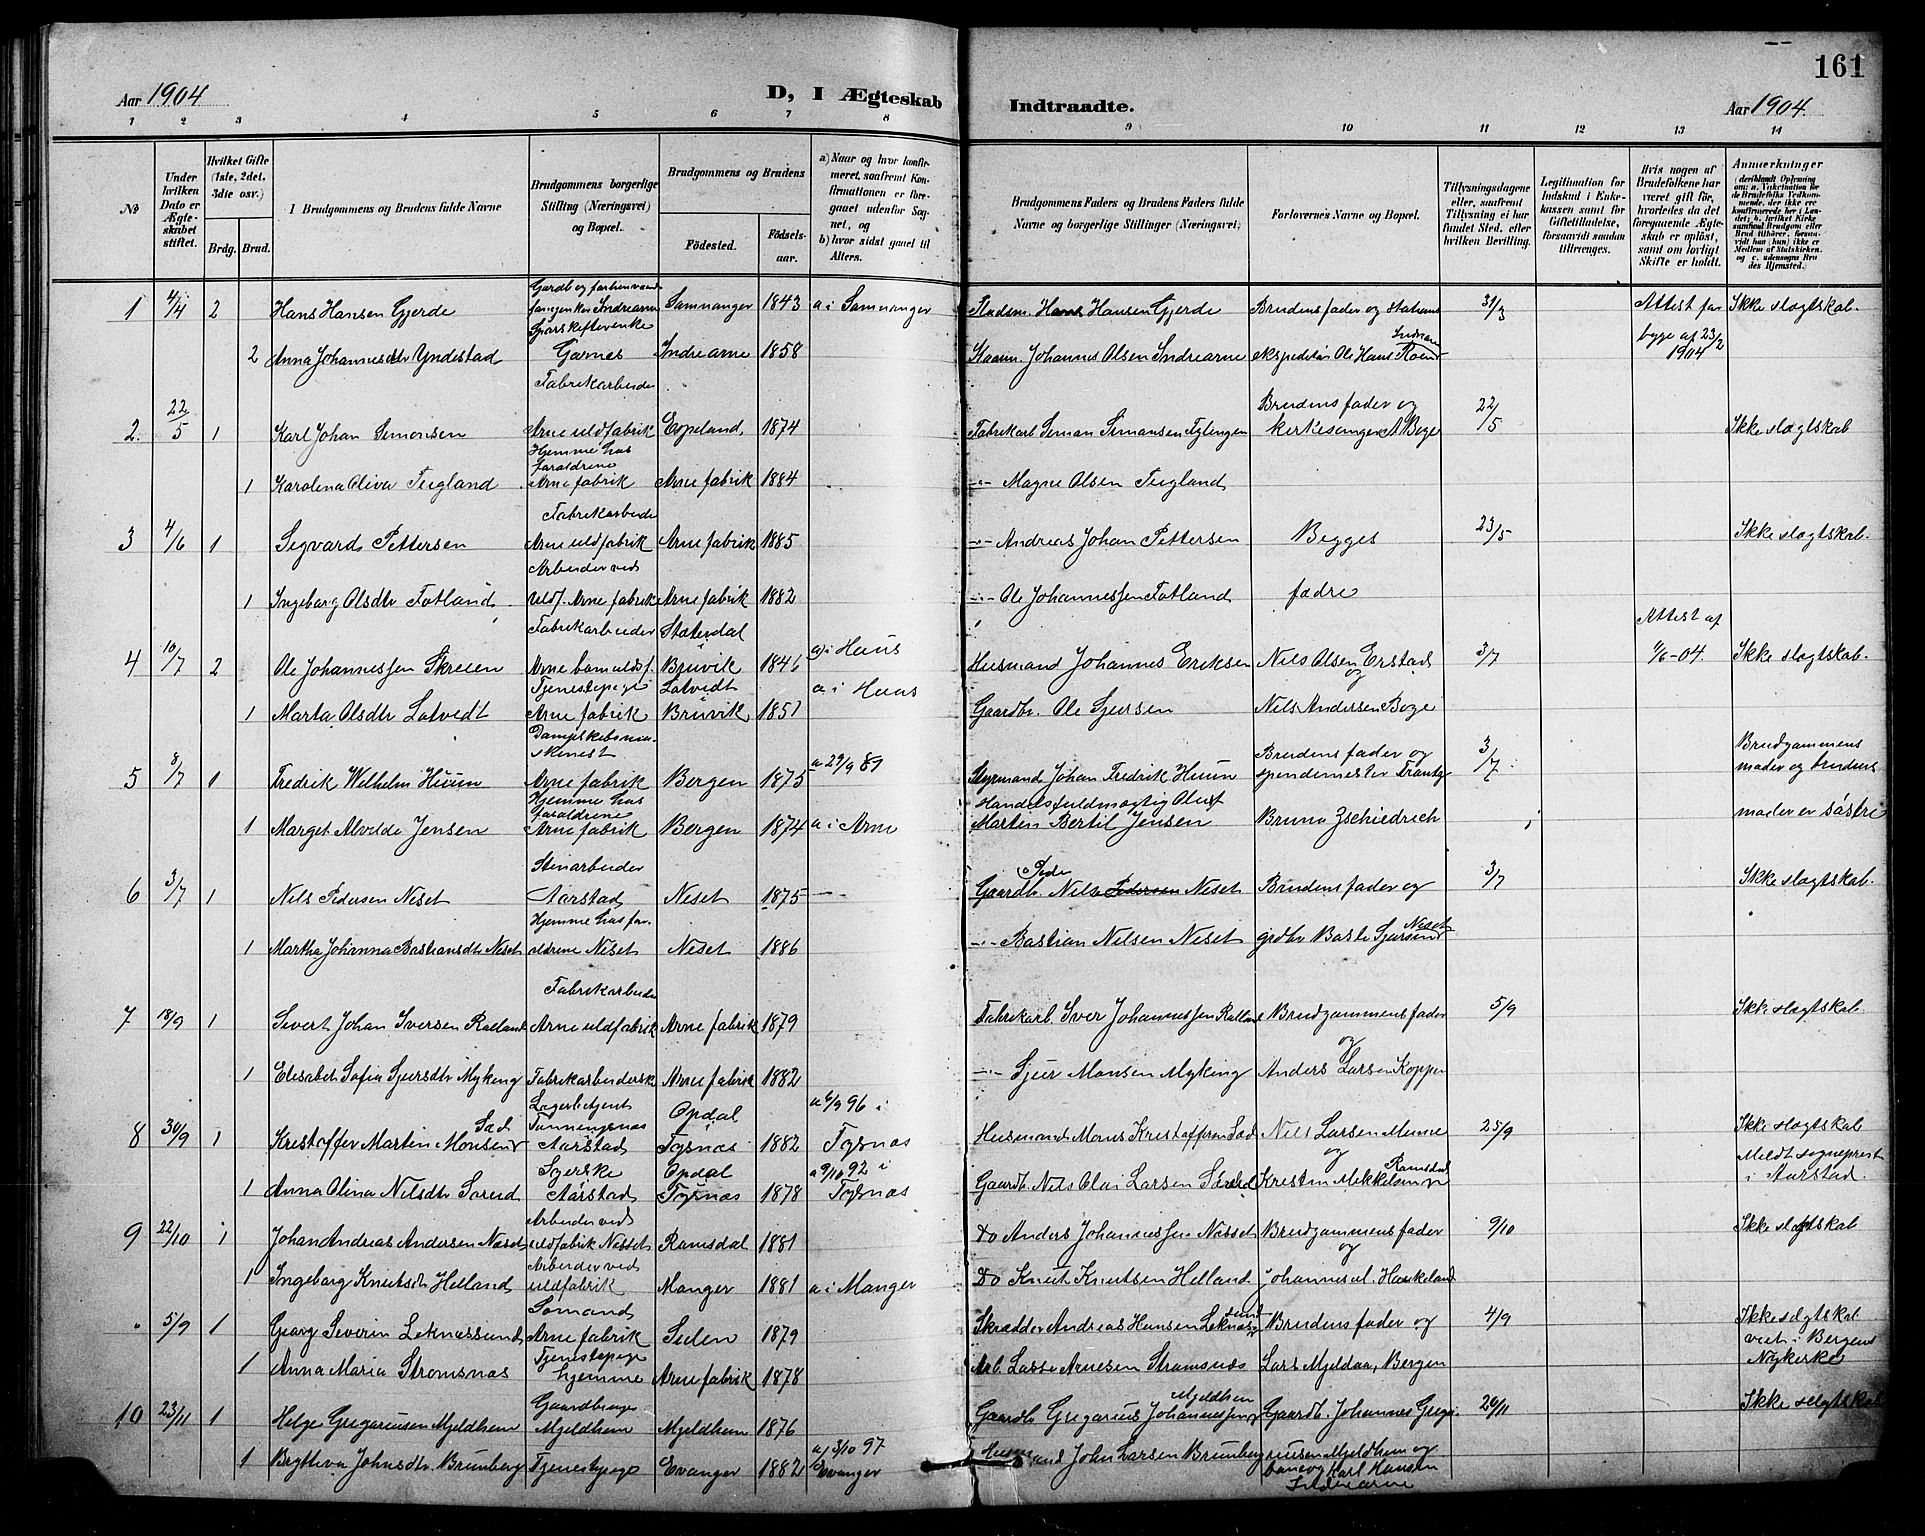 161
Aar 1904
D, I Ægteskab
Indtraadte.
Aar 1904.
1 2 3 4 5 6 7 8 9 10 11 12 13 14
No
Under hvilken Dato er Ægteskabet stiftet.
Hvilket Gifte (1ste, 2det, 3die osv.)
Brdg. Brud.
I Brudgommens og Brudens fulde Navne
Brudgommens borgerlige Stilling (Næringsvei) og Bopæl.
Brudgommens og Brudens
Fødested.
Fødselsaar.
a) Naar og hvor konfirmeret, saafremt Konfirmationen er foregaaet udenfor Sognet, og
b) hvor sidst gaaet til Alters.
Brudgommens Faders og Brudens Faders fulde Navne og borgerlige Stillinger (Næringsvei)
Forlovernes Navne og Bopæl.
Tillysningsdagene eller, saafremt Tillysning ei har fundet Sted, efter hvilken Bevilling.
Legitimation for Indskud i Enkekassen samt for Giftetilladelse, forsaavidt saadan tiltrænges.
Hvis nogen af Brudefolkene har været gift før, hvorledes da det foregaaende Ægteskab er opløst, samt om lovligt Skifte er holdt.
Anmærkninger (deriblandt Oplysning om: a. Vakcination for de Brudefolks Vedkommende, der ikke ere konfirmerede her i Landet; b. hvilket Kirkesamfund Brudgom eller Brud tilhører, forsaavidt han (hun) ikke er Medlem af Statskirken, og c. udensogns Brudes Hjemsted.
1 4/4 2 Hans Hansen Gjerde Indrearne Samnanger 1843 a i Samnanger Pladsm. Hans Hansen Gjerde Brudens fader og stations 31/3 Attest for Ikke slægtskab.
2 Anna Johannesdtr Yndestad Garnes Indrearne 1858 Johannes Olsen Indrearne ekspeditør Ole Hans byge af 23/2 1904
Fabrikarbeider
2. 22/5 1 Karl Johan Simonsen Arne uldfabrik Copeland 1874 Fabrikarb. Simon Simonsen Brudens fader og kirkesanger A Boge 22/5 Ikke slægtskab
Hjemme hos forældrene
1 Karolina Oliva Teigland Arne fabrik Arne fabrik 1884 -"- Magne Olsen Teigland
Fabrikarbeider
3 4/6 1 Sigvard Pettersen Arne uldfabrik Arne fabrik 1885 -"- Andreas Johan Pettersen Begges 23/5 Ikke slægtskab.
Arbeider ved
1 Ingeborg Olsdtr Totland uldf. Arne fabrik Arne fabrik 1882 -"- Ole Johannessen Totland fædre
Fabrikarbeider
4 10/7 2 Ole Johannessen Skreien Arne bomuldsf. Bruvik 1846 a i Haus Husmand Johannes Eriksen Nils Olsen Erstad og 3/7 Attest af 9/6-04. Ikke slægtskab.
Tjenestepige Lotvedt
1 Marta Olsdtr Lotvedt Arne fabrik Bruvik 1851 a i Haus Gaardbr. Ole Sjursen Nils Andersen Boge
5 8/7 1 Fredrik Wilhelm Huun Arne fabrik Bergen 1875 a 29/9 89 Styrmand Johan Fredrik Huun Brudens fader og spindemester Frantz 3/7 Brudgommens moder og brudens
Hjemme hos forældrene Handelsfuldmægtig Oluf
1 Marget Alvilde Jensen Arne fabrik Bergen 1874 a i Arne Martin Bertil Jensen Bruno Zschiedrich moder er søstre
Stenarbeider
6 3/7 1 Nils Pedersen Neset Aarstad Neset 1875 Gaardb. Peder Nils Pedersen Neset Brudens fader og 3/7 Ikke slægtskab.
Hjemme hos for-
1 Martha Johanna Bastiansdtr Neset ældrene Neset Neset 1886 -"- Bastian Nilsen Neset grdbr Neset
Fabrikarbeider
7 18/9 1 Sivert Johan Iversen Ratland Arne uldfabrik Arne fabrik 1879 Fabrikarb. Iver Johannessen Ratland Brudgommens fader og 5/9 Ikke slægtskab.
1 Elisabet Sofia Sjursdtr Myking Fabrikarbeiderske Arne fabrik 1882 -"- Sjur Monsen Myking Anders Larsen Koppen
Lagerbetjent
8 30/9 1 Kristoffer Martin Monsen Sæd Aarstad Opdal Tysnæs 1882 a 6/9 96 i Tysnæs Husmand Mons Kristoffersen Sæd Nils Larsen Minne og 25/9 Ikke slægtskab
Meldt sogneprest i Aarstad.
1 Anna Olina Nilsdtr Syerske Aarstad Opdal Tysnæs 1878 a 9/10 92 i Tysnæs Gaardb. Nils Olai Larsen Kristen Mikkelsen Ramsdal
9 22/10 1 Johan Andreas Andersen Neset Arbeider ved uldfabrik Nesset Ramsdal 1881 Do Anders Johannessen Nesset Brudgommens fader og 9/10 Ikke slægtskab
1 Ingeborg Knutsdtr Helland Arbeider ved uldfabrik Manger 1881 a i Manger Do Knut Knutsen Helland Johannes M. Haukeland
" 5/9 1 Georg Severin Leknessund Sømand Arne fabrik Solen 1879 Skrædder Andreas Hansen Leknessund Brudens fader og 4/9 Ikke slægtskab viet i Bergens Nykirke
1 Anna Maria Stromsnæs Tjenestepige hjemme Arne fabrik 1878 Arb. Lasse Arnesen Stromsnæs Lars Mjeldaa, Bergen
10 23/11 1 Helge Gregoriusen Mjeldhem Gaardbruger Mjeldhem Mjeldhem 1876 Gaardb. Gregorius Johannessen Mjeldhem Gaardb. Johannes Grego- 20/11 Ikke slægtskab
1 Brytteva Johnsdtr. Brunborg Tjenestepige Evanger 1882 a 3/10 97 Evanger Husmand John Larsen Brunborg riusen Mjeldhem og Karl Hansen Indrearne